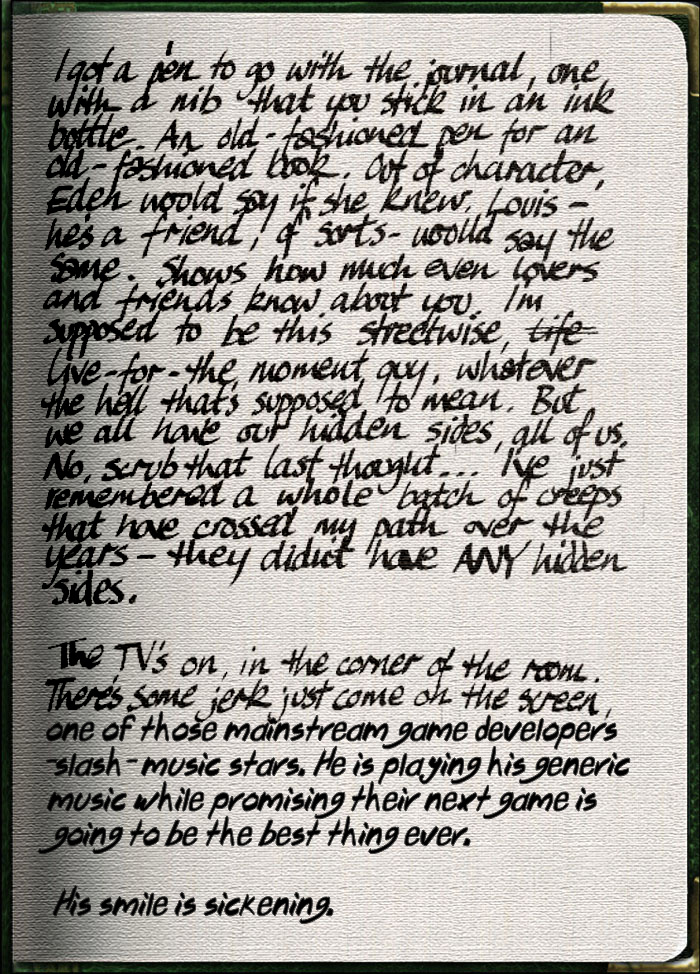 I got a pen to go with the journal, one
with a nib that you stick in an ink
bottle. An old-fashioned pen for an
old-fashioned book. Out of character,
Eden would say if she knew. Louis –
he's a friend, of sorts- would say the
same. Shows how much even lovers
and friends know about you. I'm
supposed to be this streetwise, life
live-for-the, moment guy, whatever
the hell that's supposed to mean. But
we all have our hidden sides, all of us.
No, scrub that last thought... I've just
remembered a whole batch of creeps
that have crossed my path over the
years – they didn't have ANY hidden
sides.
The TV's on, in the corner of the room.
There's some jerk just come on the screen,
one of those mainstream game developers
-slash-music stars. He is playing his generic
music while promising their next game is
going to be the best thing ever.
His smile is sickening.